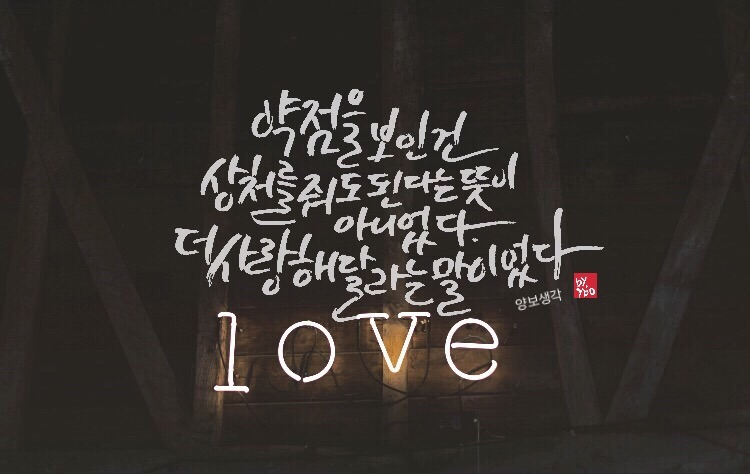 약점을 보인 건
상처를 줘도 된다는 뜻이
아니었다.
더 사랑해달라는 말이었다
양보생각
by.
love